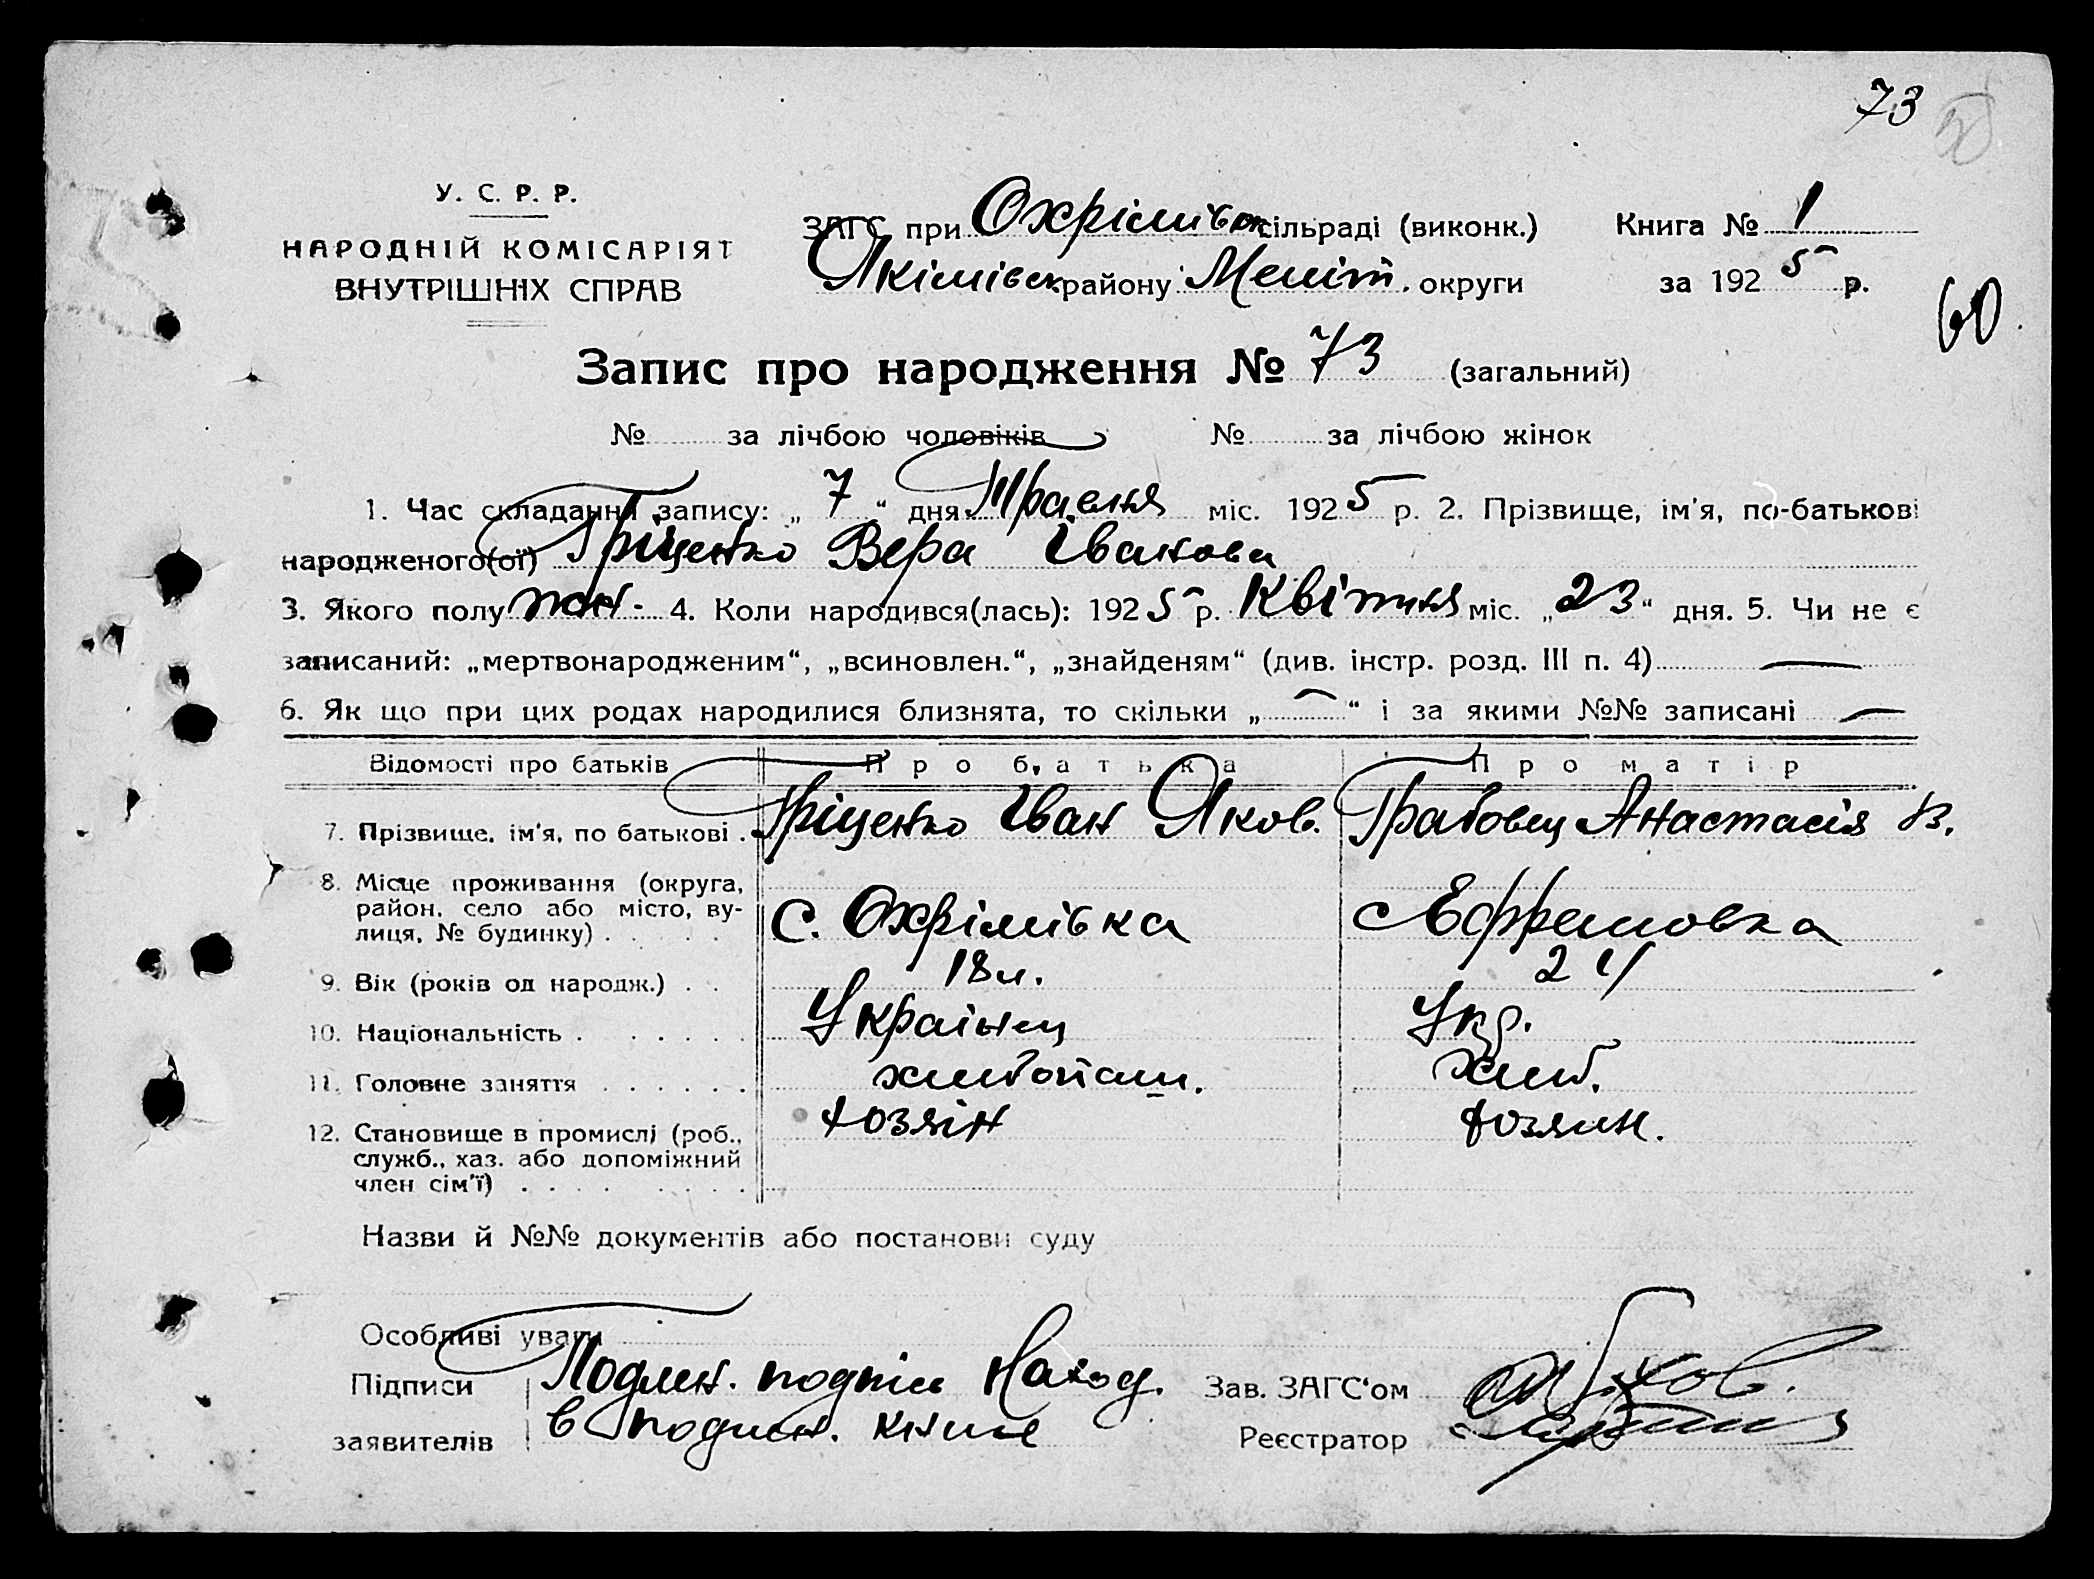 73
У. С. Р. Р.
НАРОДНІЙ КОМІСАРІЯТ
ВНУТРІШНІХ СПРАВ
ЗАГС при Охрімівськ сільраді (виконк.)
Якімівськ району Меліт. округи
Книга № 1
за 1925 р.
60
Запис про народження № 73 (загальний)
№ за лічбою чоловіків № за лічбою жінок
1. Час складання запису: „ 7 “ дня Траення міс. 1925 р. 2. Прізвище, ім'я, по-батькові
народженого(ої) Гріценко Вера Іванова
3. Якого полу жен. 4. Коли народився(лась): 1925 р. Квітння міс. „23“ дня. 5. Чи не є
записаний: „мертвонародженим“, „всиновлен.“, „знайденям“ (див. інстр. розд. III п. 4) —
6. Як що при цих родах народилися близнята, то скільки „ — “ і за якими №№ записані —
Відомості про батьків Про батька Про матір
7. Прізвище, ім'я, по батькові . Гріценко Іван Яков. Грабовец Анастасія В.
8. Місце проживання (округа,
район, село або місто, ву-
лиця, № будинку) . . . . С. Охрімівка с Еффемовка
9. Вік (років од народж.) . . 18 л. 24
10. Національність . . . . . . Українец Укр.
11. Головне заняття . . . . . . хлибопаш. хлиб.
12. Становище в промислі (роб.,
служб., хаз. або допоміжний
член сім'ї) . . . . . . . . хозяін хозяин.
Назви й №№ документів або постанови суду
Особливі уваги
Підписи
заявителів
Подлин. подпіси наход.
в подлин. книге
Зав. ЗАГС'ом
Реєстратор